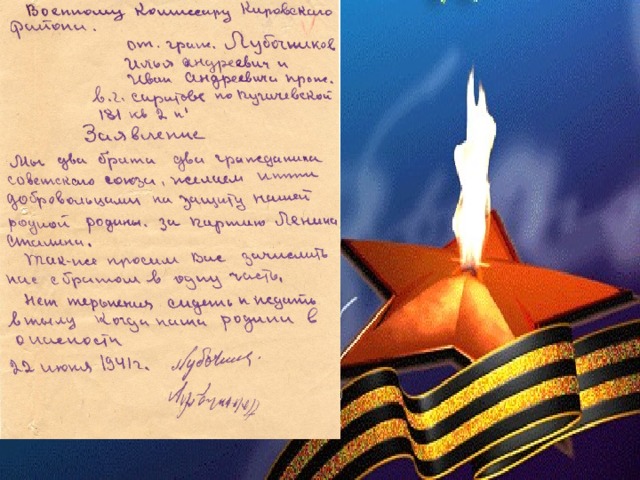 Военному Комиссару Кировского
района.
от. граж. Лубочников
Илья Андреевич и
Иван Андреевича прож.
в.г. Саратове по
181 кв 2
Заявление
Мы два брата два гражданина
советского союза, желаем итти
добровольцами на защиту нашей
родной родины. за партию Ленина
Сталина.
Так-же просим Вас зачислить
нас с братом в одну часть.
Нет терпения сидеть и ждать
в тылу когда наша родина в
опасности
22 июня 1941г.